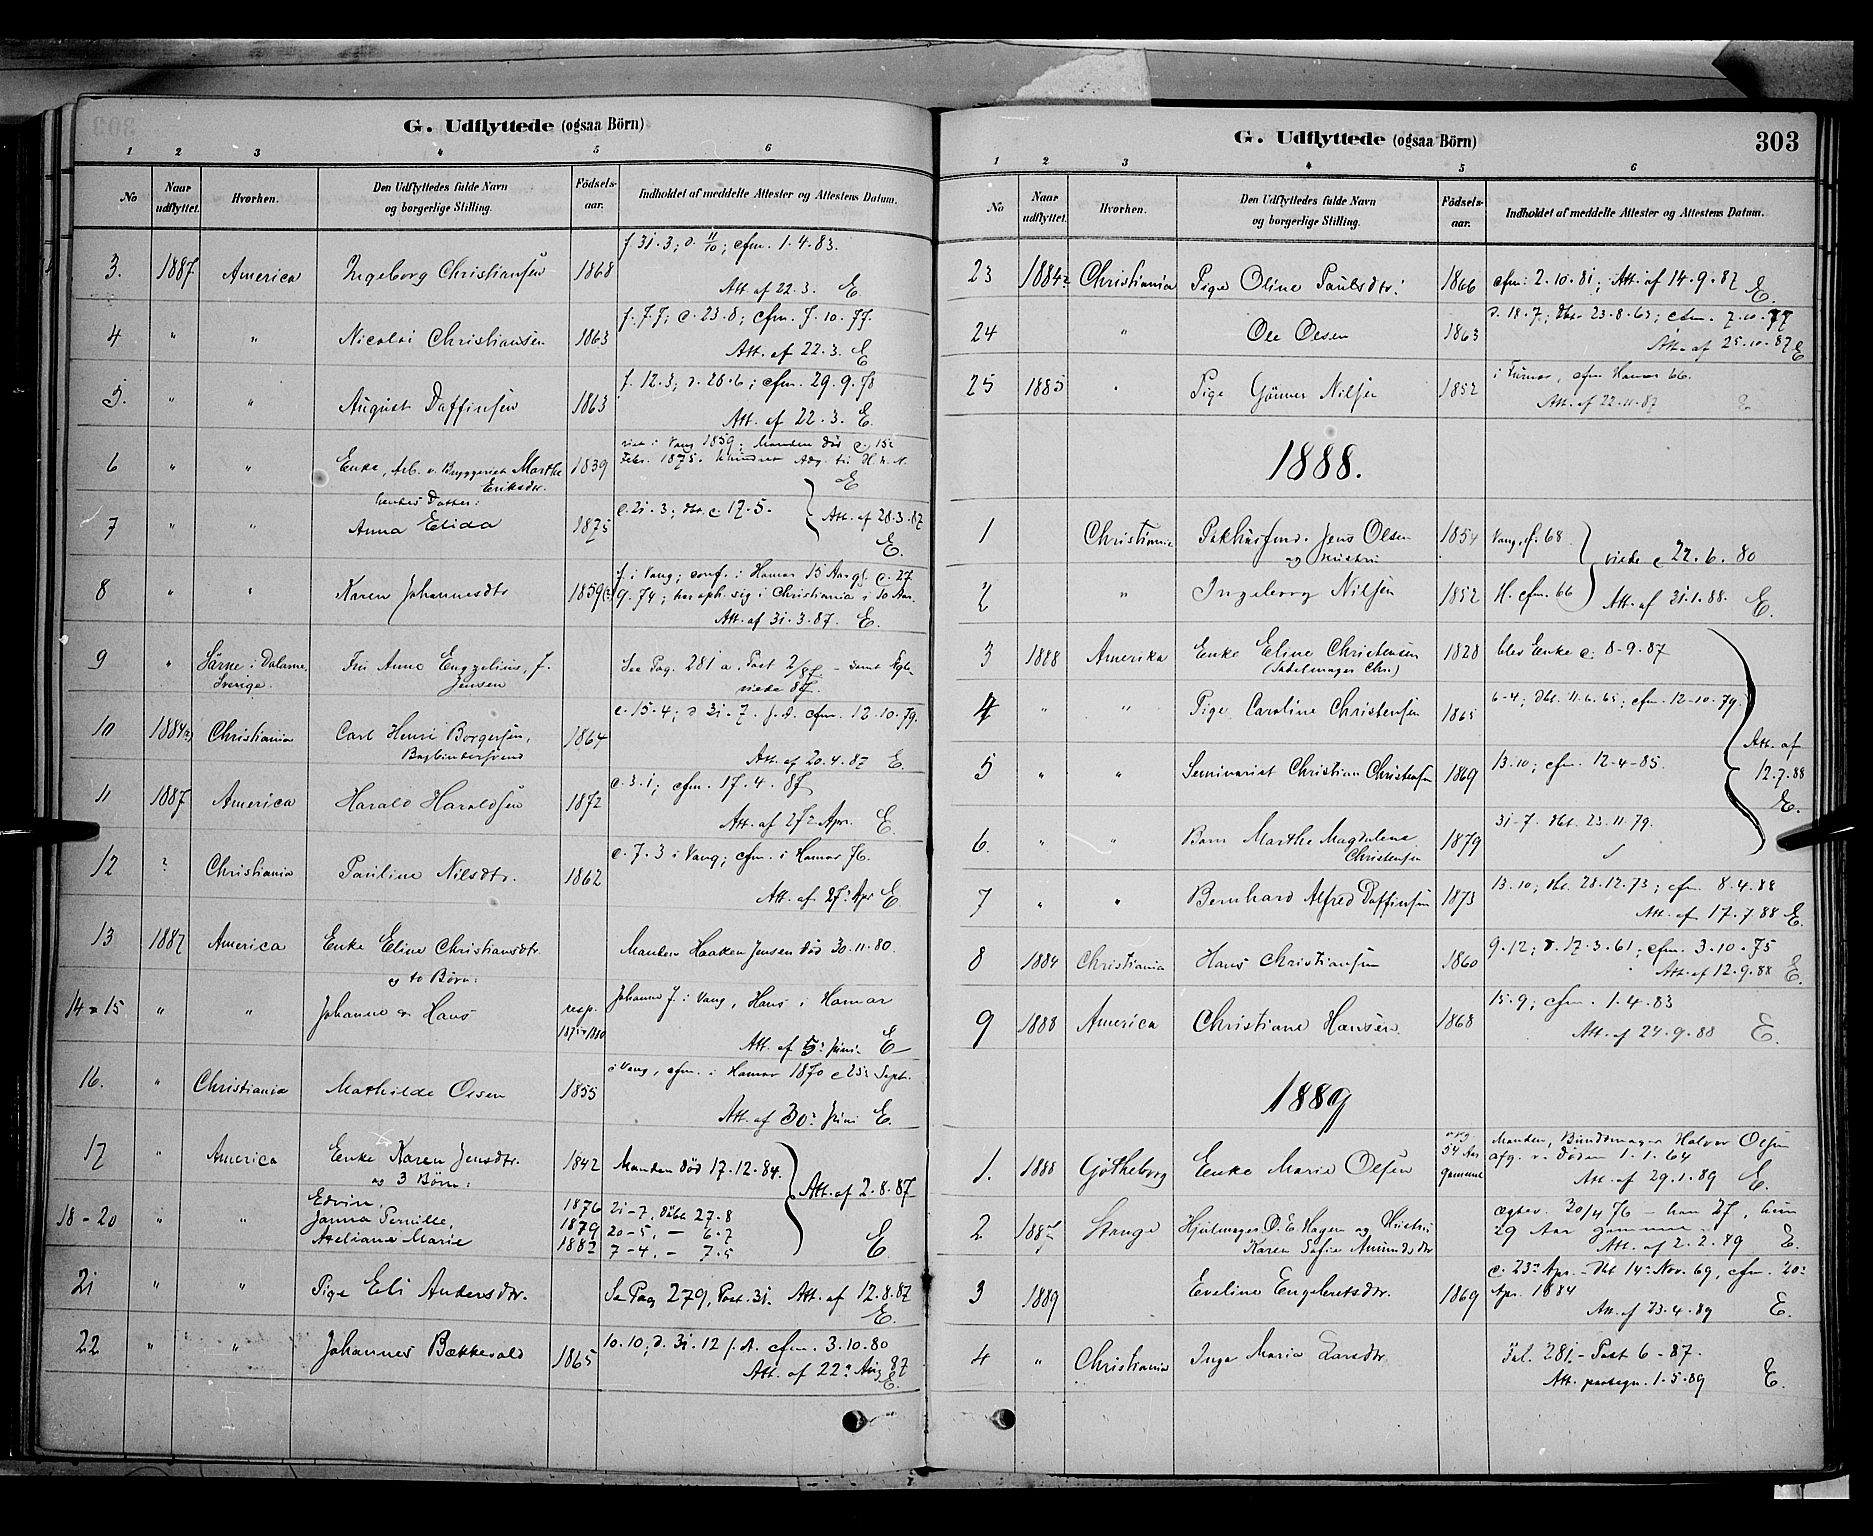 G. Udflyttede (ogsaa Börn)
1 2 3 4 5 6
No Naar udflyttet. Hvorhen. Den Udflyttedes fulde Navn og borgerlige Stilling. Födsels-aar. Indholdet af meddelte Attester og Attestens Datum.
f. 31.3; d. 11/10; cfm. 1.4.83.
3. 1887 America Ingeborg Christiansen 1868
Att. af 22.3. E
f. 7.7; d. 23.8; cfm. 7.10.77
4 " " Nicolai Christiansen 1863
Att. af 22.3. E
f. 12.3; d. 26.6; cfm. 29.9.78
5. " " August Daffinsen 1863
Att. af 22.3. E.
viet i Vang 1859. Manden död
6 " " Enke, Arb. v. Bryggeriet Marthe 1839 Febr. 1875.
Eriksdtr. E
hendes Datter:
7 " " Anna Elida 1875 Att. af 28.3.87
E.
f. i Vang; conf. i Hamar 15 Aar
8 " " Karen Johannesdtr 1859
9.74; har oph. sig i Christiania i 10 Aar.
Att. af 31.3.87. E.
9 " Särne i Dalarne, Fru Anna Engzelius, f. See Pag. 281 a. Post 2/87 - samt
Sverige. Jensen viede 87.
c. 15.4; d. 31.7. f. A. cfm. 12.10.79.
10 1884 Christiania Carl Henri Borgersen, 1864
Bogbindersvend Att. af 20.4.87 E.
c. 3.1; cfm. 17.4.87
11 1887 America Harald Haraldsen 1872
Att. af 27. Apr. E.
c. 7.3 i Vang; cfm. i Hamar 76.
12 ? Christiania Pauline Nilsdtr. 1862
Att. af 27. Apr E
13 1887 America Enke Eline Christiansdtr. Manden Haaken Jensen död 30.11.80
og to Börn:
14 & 15 " " Johanne & Hans resp. Johanne f. i Vang, Hans i Hamar
Att. af 5. Juni E
i Vang, cfm. i Hamar 1870 25. Sept.
16. " Christiania Mathilde Olsen 1855
Att. af 30. Juni E.
17 " America Enke Karen Jensdtr. 1842 Manden död 17.12.84.
og 3 Börn: Att. af 2.8.87
Edvin, 1876 21-7, Döbt 27.8
18-20 " " Janna Pernille, 1879 20-5, - 6.7
Marie 1882 7-4, - 7.5 E.
21 " " Pige Eli Andersdtr. Se Pag 279, Post. 31. Att. af 12.8.87
E.
22 " " Johannes Bækkevold 1865 10.10; d. 31.12 f. A. cfm. 3.10.80
Att. af 22. Aug 87
E.
G. Udflyttede (ogsaa Börn) 303
1 2 3 4 5 6
No Naar udflyttet. Hvorhen. Den Udflyttedes fulde Navn og borgerlige Stilling. Födsels-aar. Indholdet af meddelte Attester og Attestens Datum.
23 1884 Christiania Pige Oline Paulsdtr. 1866 cfm. 2.10.81; Att. af 14.9.87 E.
d. 18.7; dbt. 23.8.63; cfm. 7.10.77
24 " Ole Olsen 1863
Att. af 25.10.87 E
25 1885 " Pige Nilsen 1852 i Furnæs, cfm Hamar 66.
Att. af 22.11.87 E
1888.
1 Christiania Pakhusfmd. Jens Olsen 1854 Vang, cf. 68
og Hustru viede c 22.6.80
2 " Ingeborg Nilsen 1852 H. cfm. 66 Att. af 31.1.88. E.
3 1888 Amerika Enke Eline Christensen 1828 blev Enke c. 8-9.87
(Sadelmager Chr.)
4 " " Pige Caroline Christensen 1865 6-4; dbt. 11.6.65; cfm. 12-10.79.
Att. af
5 " " Seminarist Christian Christensen 1869 13.10; cfm. 12-4-85. 12.7.88
E.
31-7. dbt. 23.11.79.
6. " " Barn Marthe Magdalena 1879
Christensen
13.10; dbt. 28.12.73; cfm. 8.4.88
7 " " Bernhard Alfred Daffinsen 1873
Att. af 17.7.88 E.
9.12; d. 17.3.61; cfm. 3.10.75
8 1884 Christiania Hans Christiansen 1860
Att. af 12.9.88 E.
15.9; cfm. 1.4.83
9 1888 America Christiane Hansen 1868
Att. af 24.9.88 E.
1889
54 Aar Manden, Bundtmager Halvor Olsen
1. 1888 Götheborg Enke Marie Olsen gammel afg. v. Döden 1.1.64
Att. af 29.1.89 E.
2 1887 Stange Hjulmager O. E. Hagen og Hustru ægtev. 20/4 76 - han 27, hun
Karen Sofie Amundsdtr 29 Aar gamme
Att. af 2.2.89 E.
c. 23. Apr. - dbt 14. Nov. 69, cfm. 20.
3 1889 Eveline Engebretsdtr. 1869 Apr. 1884
Att. af 23.4.89 E.
4 " Christiania Inga Marie Larsdtr. Fol. 281 - Post 6 - 87.
Att. 1.5.89 E.